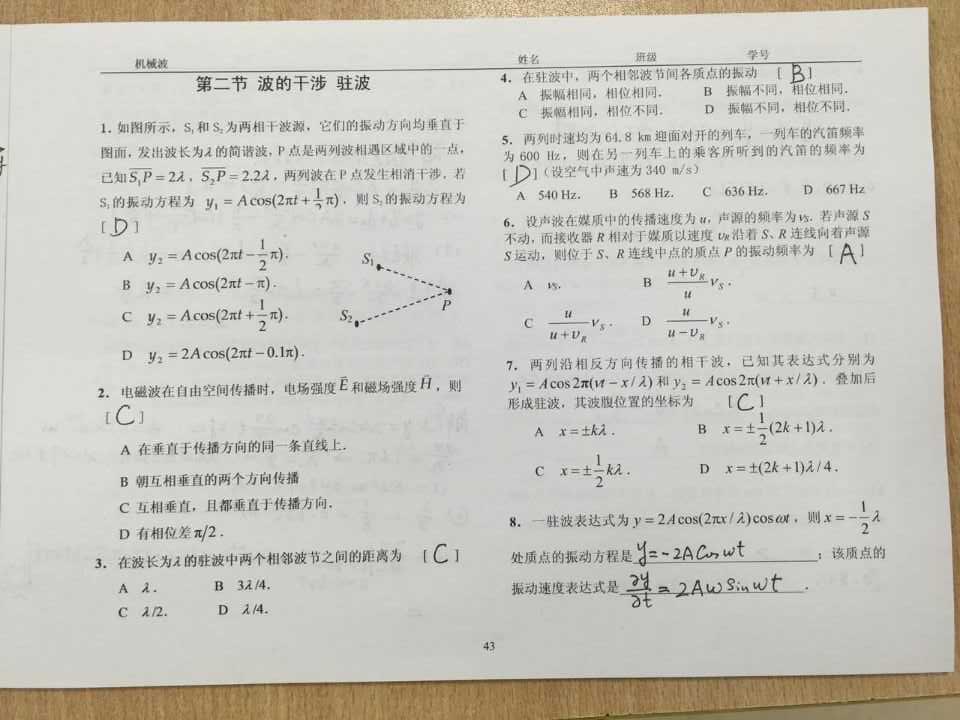 机械波
姓名 班级 学号
第二节 波的干涉 驻波
1. 如图所示，S₁和 S₂为两相干波源，它们的振动方向均垂直于
图面，发出波长为λ的简谐波，P 点是两列波相遇区域中的一点，
已知 $\overline{S_1P}=2\lambda$，$\overline{S_2P}=2.2\lambda$，两列波在 P 点发生相消干涉．若
S₁的振动方程为 $y_1=A\cos(2\pi t+\frac{1}{2}\pi)$，则 S₂的振动方程为
[ D ]
A $y_2=A\cos(2\pi t-\frac{1}{2}\pi)$．
B $y_2=A\cos(2\pi t-\pi)$．
C $y_2=A\cos(2\pi t+\frac{1}{2}\pi)$．
D $y_2=2A\cos(2\pi t-0.1\pi)$．
S₁
S₂
P
2. 电磁波在自由空间传播时，电场强度 $\vec{E}$ 和磁场强度 $\vec{H}$，则
[ C ]
A 在垂直于传播方向的同一条直线上．
B 朝互相垂直的两个方向传播
C 互相垂直，且都垂直于传播方向．
D 有相位差 π/2．
3. 在波长为λ的驻波中两个相邻波节之间的距离为 [ C ]
A λ． B 3λ/4．
C λ/2． D λ/4．
4. 在驻波中，两个相邻波节间各质点的振动 [ B ]
A 振幅相同，相位相同． B 振幅不同，相位相同．
C 振幅相同，相位不同． D 振幅不同，相位不同．
5. 两列时速均为 64.8 km 迎面对开的列车，一列车的汽笛频率
为 600 Hz，则在另一列车上的乘客所听到的汽笛的频率为
[ D ]（设空气中声速为 340 m/s）
A 540 Hz． B 568 Hz． C 636 Hz． D 667 Hz
6. 设声波在媒质中的传播速度为 u，声源的频率为 νS．若声源 S
不动，而接收器 R 相对于媒质以速度 υR 沿着 S、R 连线向着声源
S 运动，则位于 S、R 连线中点的质点 P 的振动频率为 [ A ]
A νS． B $\frac{u+\upsilon_R}{u}\nu_S$．
C $\frac{u}{u+\upsilon_R}\nu_S$． D $\frac{u}{u-\upsilon_R}\nu_S$．
7. 两列沿相反方向传播的相干波，已知其表达式分别为
$y_1=A\cos2\pi(\nu t-x/\lambda)$ 和 $y_2=A\cos2\pi(\nu t+x/\lambda)$．叠加后
形成驻波，其波腹位置的坐标为 [ C ]
A x=±kλ． B $x=\pm\frac{1}{2}(2k+1)\lambda$．
C $x=\pm\frac{1}{2}k\lambda$． D x=±(2k+1)λ/4．
8. 一驻波表达式为 y=2Acos(2πx/λ)cosωt，则 $x=-\frac{1}{2}\lambda$
处质点的振动方程是 y=-2Acosωt；该质点的
振动速度表达式是 $\frac{\partial y}{\partial t}=2A\omega\sin\omega t$．
43